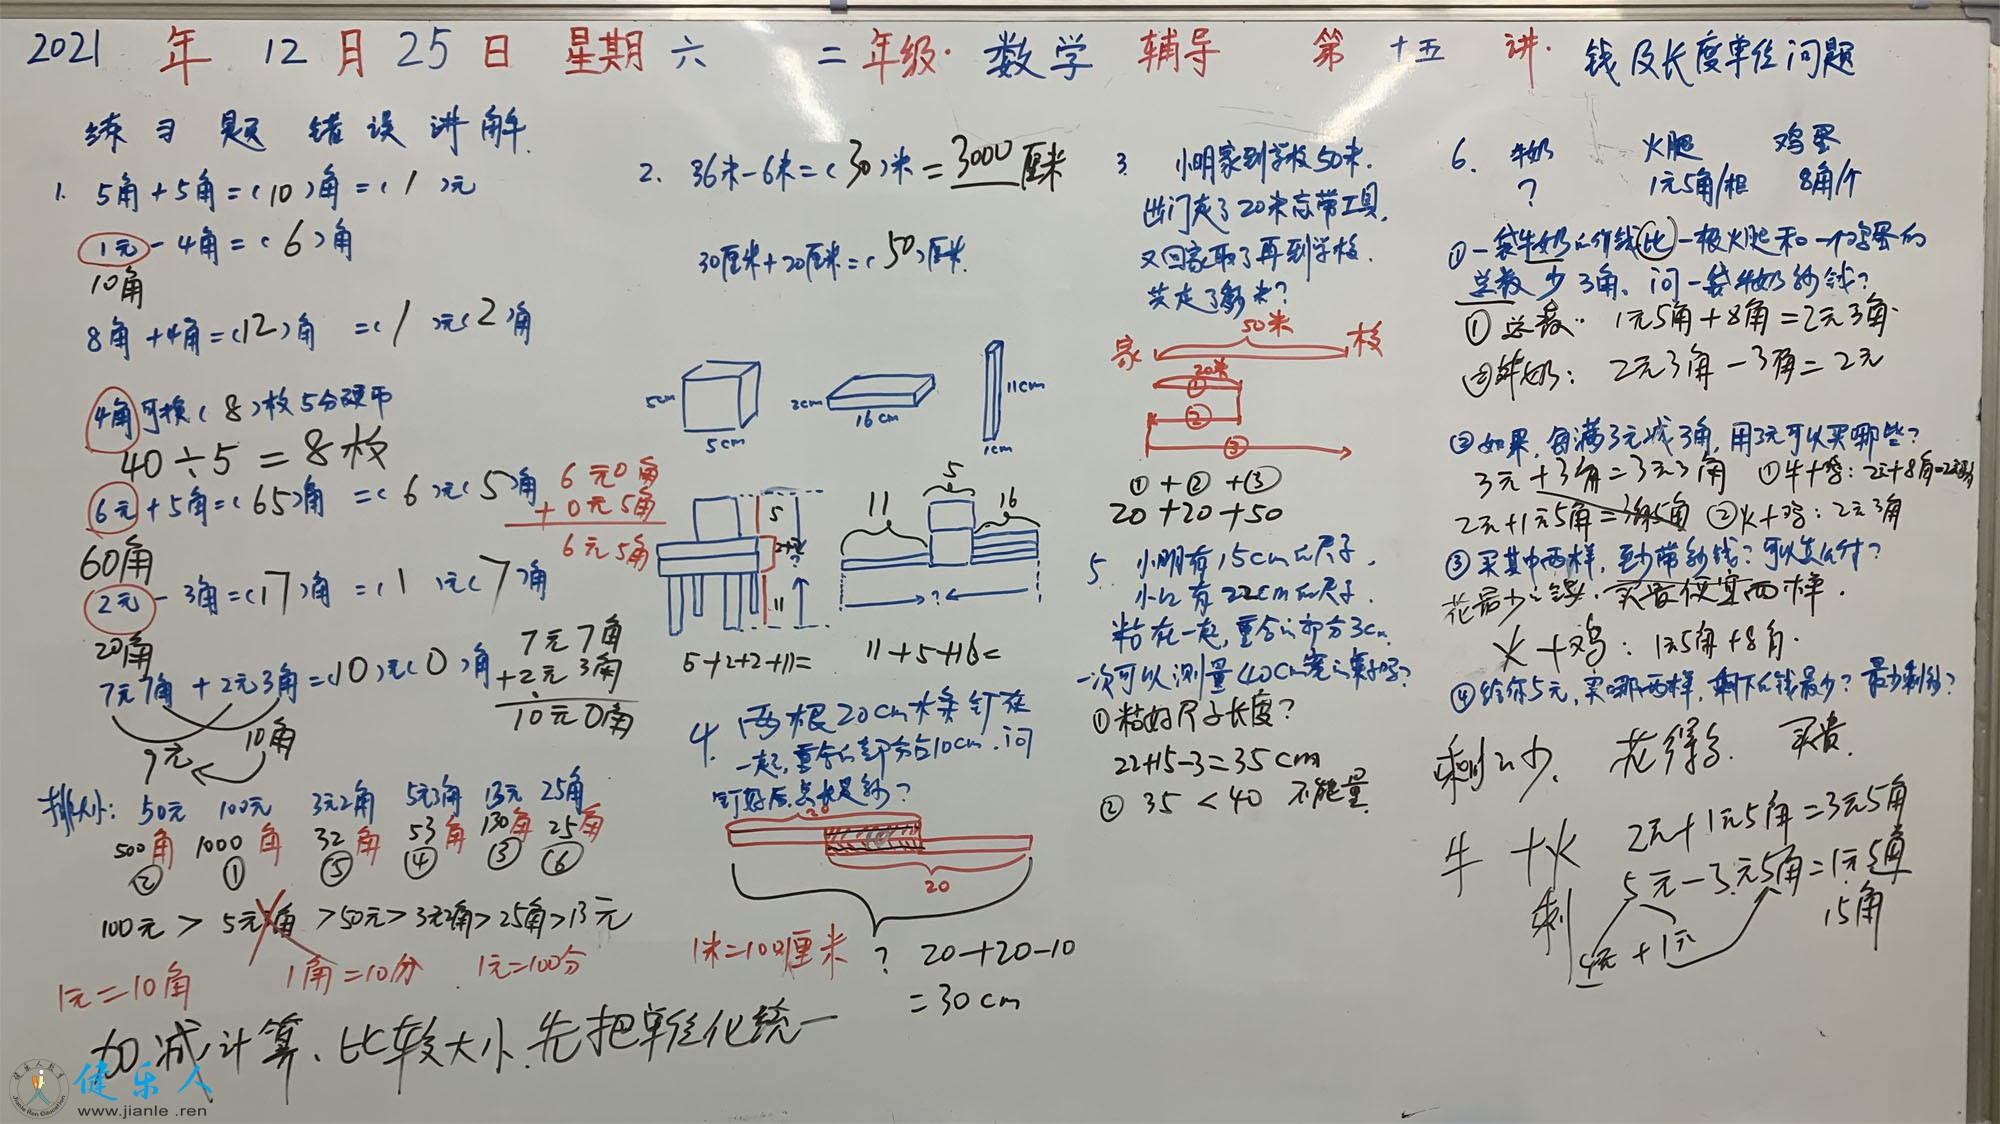 2021 年 12 月 25 日 星期 六 二 年级· 数学 辅导 第 十五 讲· 钱及长度单位问题
练 习 题 错 误 讲 解.
1. 5角+5角=(10)角=(1)元
1元-4角=(6)角
10角
8角+4角=(12)角 =(1)元(2)角
4角可换(8)枚5分硬币
40÷5=8枚
6元+5角=(65)角 =(6)元(5)角
60角
6元0角
+0元5角
6元5角
2元-3角=(17)角=(1)元(7)角
20角
7元7角+2元3角=(10)元(0)角
9元 10角
7元7角
+2元3角
10元0角
排大小: 50元 100元 3元2角 5元3角 13元 25角
500角 1000角 32角 53角 130角 25角
② ① ⑤ ④ ③ ⑥
100元>5元3角>50元>3元2角>25角>13元
1元=10角 1角=10分 1元=100分
加减计算、比较大小、先把单位化统一
2. 36米-6米=(30)米=3000厘米
30厘米+20厘米=(50)厘米.
5cm 5cm
2cm 16cm
11cm 1cm
5 2+2 ? 11
11 5 16 ?
5+2+2+11= 11+5+16=
4. 两根20cm木条钉在
一起,重合的部分占10cm.问
钉好后,总长是多少?
20
20
1米=100厘米 ? 20+20-10
=30cm
3. 小明家到学校50米.
出门走了20米忘带工具,
又回家取了再到学校.
共走了多少米?
家 50米 校
20米
① ② ③
①+②+③
20+20+50
5. 小明有15cm的尺子,
小红有22cm的尺子.
粘在一起,重合的部分3cm.
一次可以测量40cm宽的桌子吗?
①粘好尺子长度?
22+15-3=35cm
② 35<40 不能量.
6. 牛奶 火腿 鸡蛋
? 1元5角/根 8角/个
①一袋牛奶的价钱比一根火腿和一个鸡蛋的
总数少3角、问一袋牛奶多少钱?
①总数: 1元5角+8角=2元3角.
②牛奶: 2元3角-3角=2元
②如果,每满3元减3角,用3元可以买哪些?
3元+3角=3元3角 ①牛+鸡:2元+8角=2元8角
2元+1元5角=3元5角 ②火+鸡:2元3角
③买其中两样,至少带多少钱?可以怎么付?
花最少的钱,买最便宜两样.
火+鸡: 1元5角+8角.
④给你5元,买哪两样,剩下的钱最少?最少剩多少?
剩的少. 花得多. 买贵.
牛+火 2元+1元5角=3元5角
剩 5元-3元5角=1元5角
4元+1元 15角
健乐人
www.jianle.ren